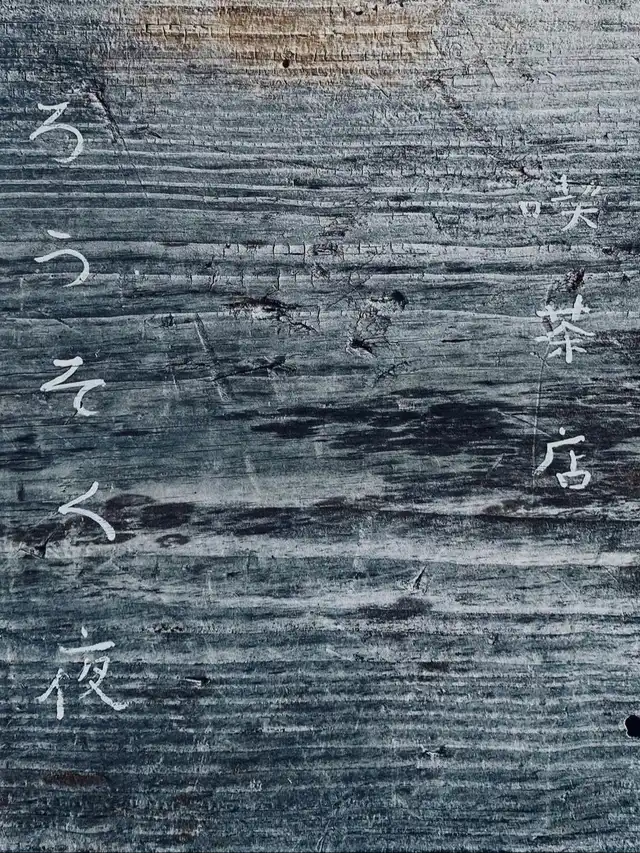 喫茶店
ろうそく夜